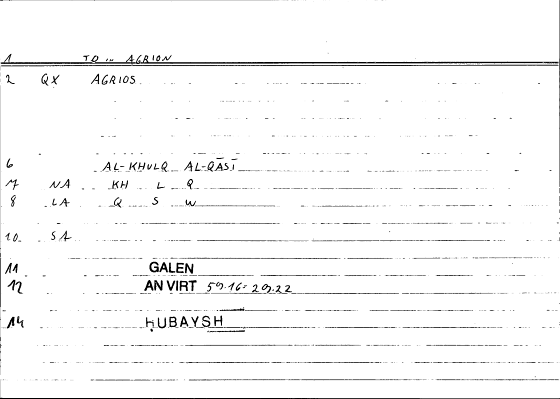 1 TO in AGRION
2 QX AGRIOS
6 AL-KHULQ AL-QĀSĪ
7 NA KH L Q
8 LA Q S W
10 SA
11 GALEN
12 AN VIRT 59.16-29.22
14 ḤUBAYSH